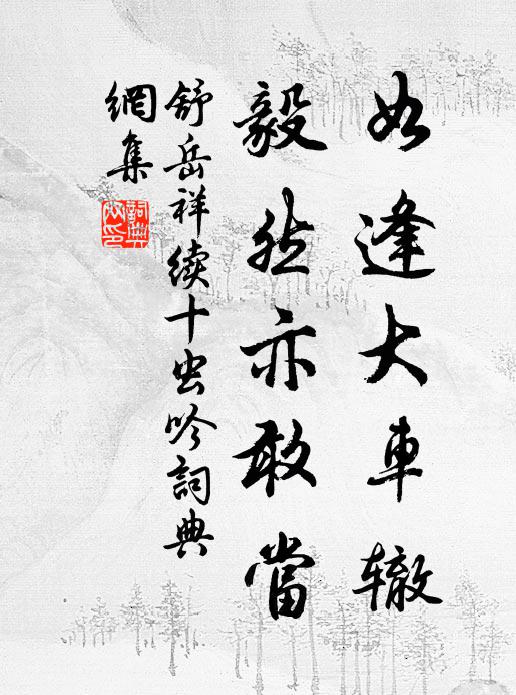 如逢大車辙
毅然亦敢當
舒岳祥续十虫吟詞典
網集
詞典网印